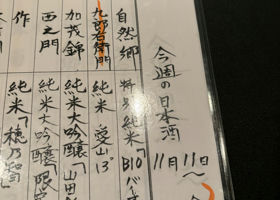 今週の日本酒
11月11日〜
自然郷 特別純米「BIO」バー
九郎右衛門 純米 愛山13°
加茂錦 純米大吟醸「山田
西之門 純米大吟醸 限
作 純米「穂乃智」